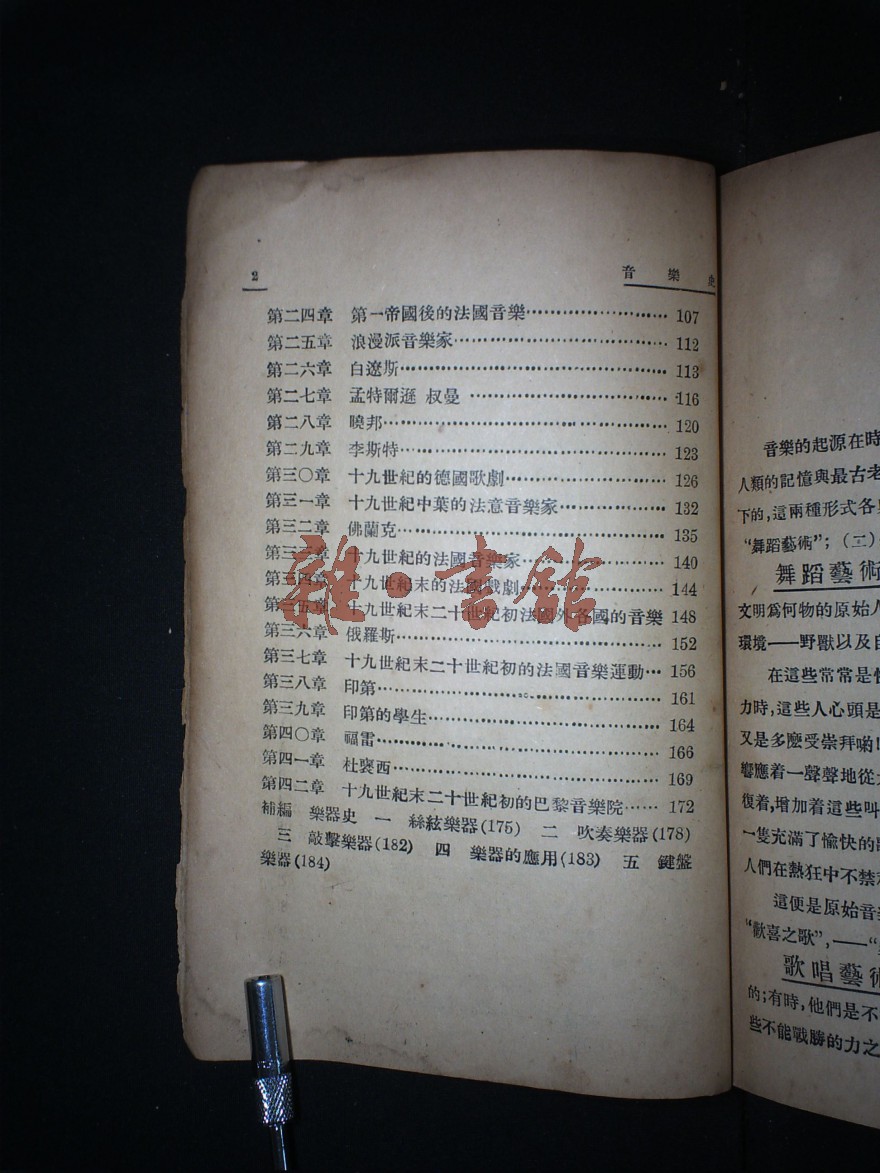 2
音樂史
第二四章 第一帝國後的法國音樂⋯⋯ 107
第二五章 浪漫派音樂家⋯⋯ 112
第二六章 白遼斯⋯⋯ 113
第二七章 孟特爾遜 叔曼⋯⋯ 116
第二八章 曉邦⋯⋯ 120
第二九章 李斯特⋯⋯ 123
第三〇章 十九世紀的德國歌劇⋯⋯ 126
第三一章 十九世紀中葉的法意音樂家⋯⋯ 132
第三二章 佛蘭克⋯⋯ 135
第三三章 十九世紀的法國音樂家⋯⋯ 140
第三四章 十九世紀末的法國戲劇⋯⋯ 144
第三五章 十九世紀末二十世紀初法國外各國的音樂 148
第三六章 俄羅斯⋯⋯ 152
第三七章 十九世紀末二十世紀初的法國音樂運動⋯ 156
第三八章 印第⋯⋯ 161
第三九章 印第的學生⋯⋯ 164
第四〇章 福雷⋯⋯ 166
第四一章 杜褒西⋯⋯ 169
第四二章 十九世紀末二十世紀初的巴黎音樂院⋯⋯ 172
補編 樂器史 一 絲絃樂器(175) 二 吹奏樂器(178)
三 敲擊樂器(182) 四 樂器的應用(183) 五 鍵盤
樂器(184)
雜·書館
音樂的起源在時
人類的記憶與最古老
下的,這兩種形式各
“舞蹈藝術”;(二)
舞蹈藝術
文明爲何物的原始人
環境——野獸以及自
在這些常常是
力時,這些人心頭是
又是多麽受崇拜喲!
響應着一聲聲地從
復着,增加着這些叫
一隻充滿了愉快的
人們在熱狂中不禁
這便是原始音樂
“歡喜之歌”,——“
歌唱藝術
的;有時,他們是不
些不能戰勝的力之